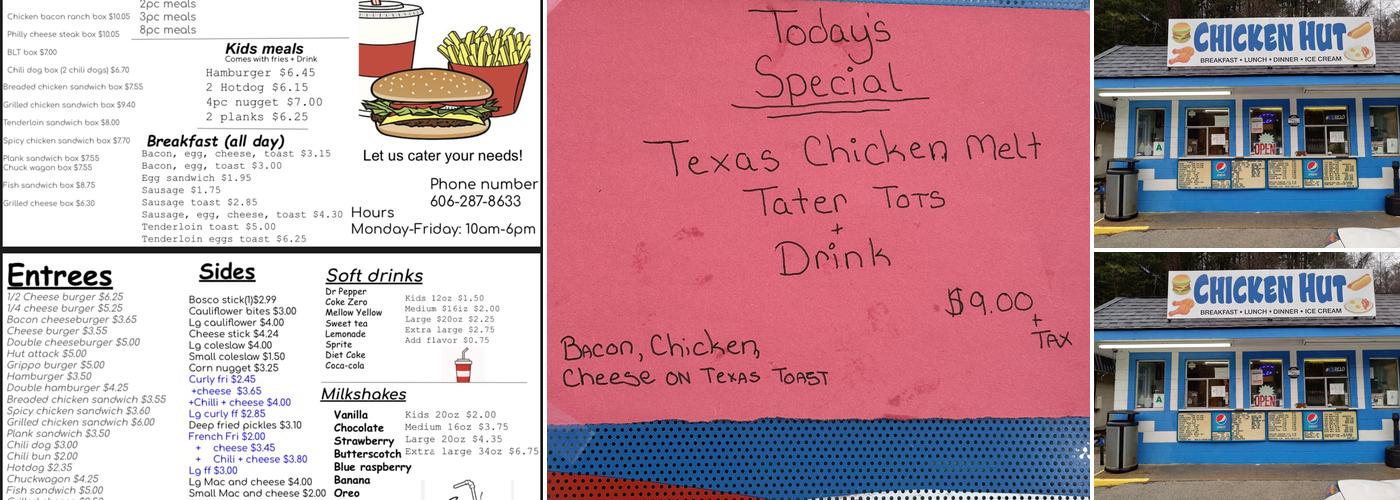 2pc meals
3pc meals
8pc meals
Chicken bacon ranch box $10.05
Philly cheese steak box $10.05
BLT box $7.00
Chili dog box (2 chili dogs) $6.70
Breaded chicken sandwich box $7.55
Grilled chicken sandwich box $9.40
Tenderloin sandwich box $8.00
Spicy chicken sandwich box $7.70
Plank sandwich box $7.55
Chuck wagon box $7.55
Fish sandwich box $8.75
Grilled cheese box $6.30
Kids meals
Comes with fries + Drink
Hamburger $6.45
2 Hotdog $6.15
4pc nugget $7.00
2 planks $6.25
Breakfast (all day)
Bacon, egg, cheese, toast $3.15
Bacon, egg, toast $3.00
Egg sandwich $1.95
Sausage $1.75
Sausage toast $2.85
Sausage, egg, cheese, toast $4.30
Tenderloin toast $5.00
Tenderloin eggs toast $6.25
Let us cater your needs!
Phone number
606-287-8633
Hours
Monday-Friday: 10am-6pm
Entrees
1/2 Cheese burger $6.25
1/4 cheese burger $5.25
Bacon cheeseburger $3.65
Cheese burger $3.55
Double cheeseburger $5.00
Hut attack $5.00
Grippo burger $5.00
Hamburger $3.50
Double hamburger $4.25
Breaded chicken sandwich $3.55
Spicy chicken sandwich $3.60
Grilled chicken sandwich $6.00
Plank sandwich $3.50
Chili dog $3.00
Chili bun $2.00
Hotdog $2.35
Chuckwagon $4.25
Fish sandwich $5.00
Sides
Bosco stick(1)$2.99
Cauliflower bites $3.00
Lg cauliflower $4.00
Cheese stick $4.24
Lg coleslaw $4.00
Small coleslaw $1.50
Corn nugget $3.25
Curly fri $2.45
+cheese $3.65
+Chilli + cheese $4.00
Lg curly ff $2.85
Deep fried pickles $3.10
French Fri $2.00
+ cheese $3.45
+ Chili + cheese $3.80
Lg ff $3.00
Lg Mac and cheese $4.00
Small Mac and cheese $2.00
Soft drinks
Dr Pepper
Coke Zero
Mellow Yellow
Sweet tea
Lemonade
Sprite
Diet Coke
Coca-cola
Kids 12oz $1.50
Medium $16iz $2.00
Large $20oz $2.25
Extra large $2.75
Add flavor $0.75
Milkshakes
Vanilla
Chocolate
Strawberry
Butterscotch
Blue raspberry
Banana
Oreo
Kids 20oz $2.00
Medium 16oz $3.75
Large 20oz $4.35
Extra large 34oz $6.75
Today's
Special
Texas Chicken Melt
Tater Tots
+
Drink
$9.00
+
Tax
Bacon, Chicken,
Cheese on Texas Toast
CHICKEN HUT
BREAKFAST • LUNCH • DINNER • ICE CREAM
OPEN
pepsi
CHICKEN HUT
BREAKFAST • LUNCH • DINNER • ICE CREAM
OPEN
pepsi